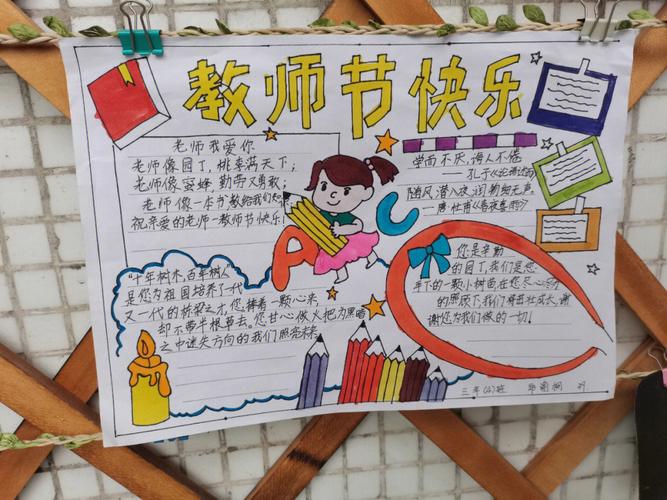 教师节快乐
老师我爱你
老师像园丁，桃李满天下；
老师像蜜蜂，勤劳又勇敢；
老师像一本书教给我们知识
祝亲爱的老师—教师节快乐！
学而不厌，诲人不倦
——孔子《论语述而》
随风潜入夜，润物细无声。
——唐 杜甫《春夜喜雨》
"十年树木，百年树人"
是您为祖国培养了一代
又一代的桥梁之才，您捧着一颗心来，
却不带半根草去。您甘心做火把为黑暗
之中迷失方向的我们照亮未来
A
C
您是辛勤
的园丁，我们是您
手下的一颗小树苗在您尽心尽力
的照顾下，我们茁壮成长，谢
谢您为我们做的一切！
三年(4)班